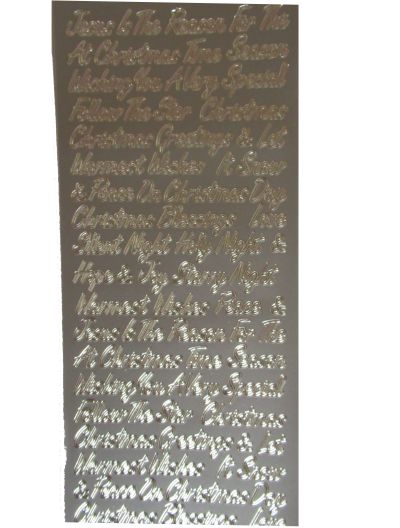 Jesus Is The Reason For The
At Christmas Time Season
Wishing You A Very Special
Follow The Star Christmas
Christmas Greetings & Let
Warmest Wishes It Snow
& Peace On Christmas Day
Christmas Blessings Love
Silent Night Holy Night &
Hope & Joy Starry Night
Warmest Wishes Peace &
Jesus Is The Reason For The
At Christmas Time Season
Wishing You A Very Special
Follow The Star Christmas
Christmas Greetings & Let
Warmest Wishes It Snow
& Peace On Christmas Day
Christmas Blessings Love